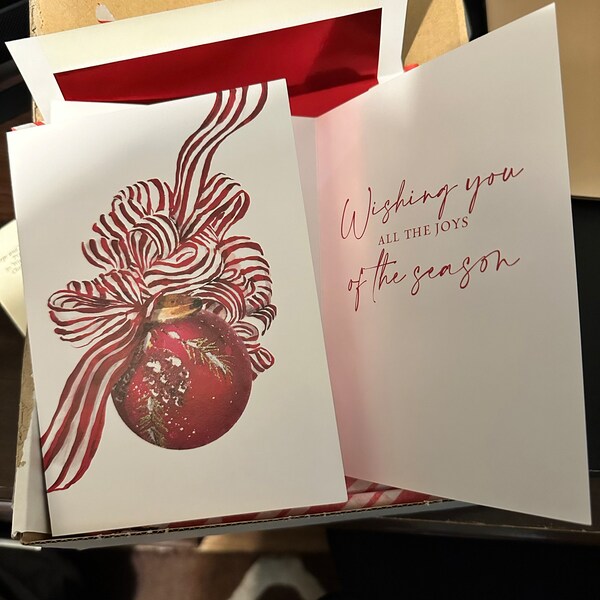 Wishing you
ALL THE JOYS
of the season